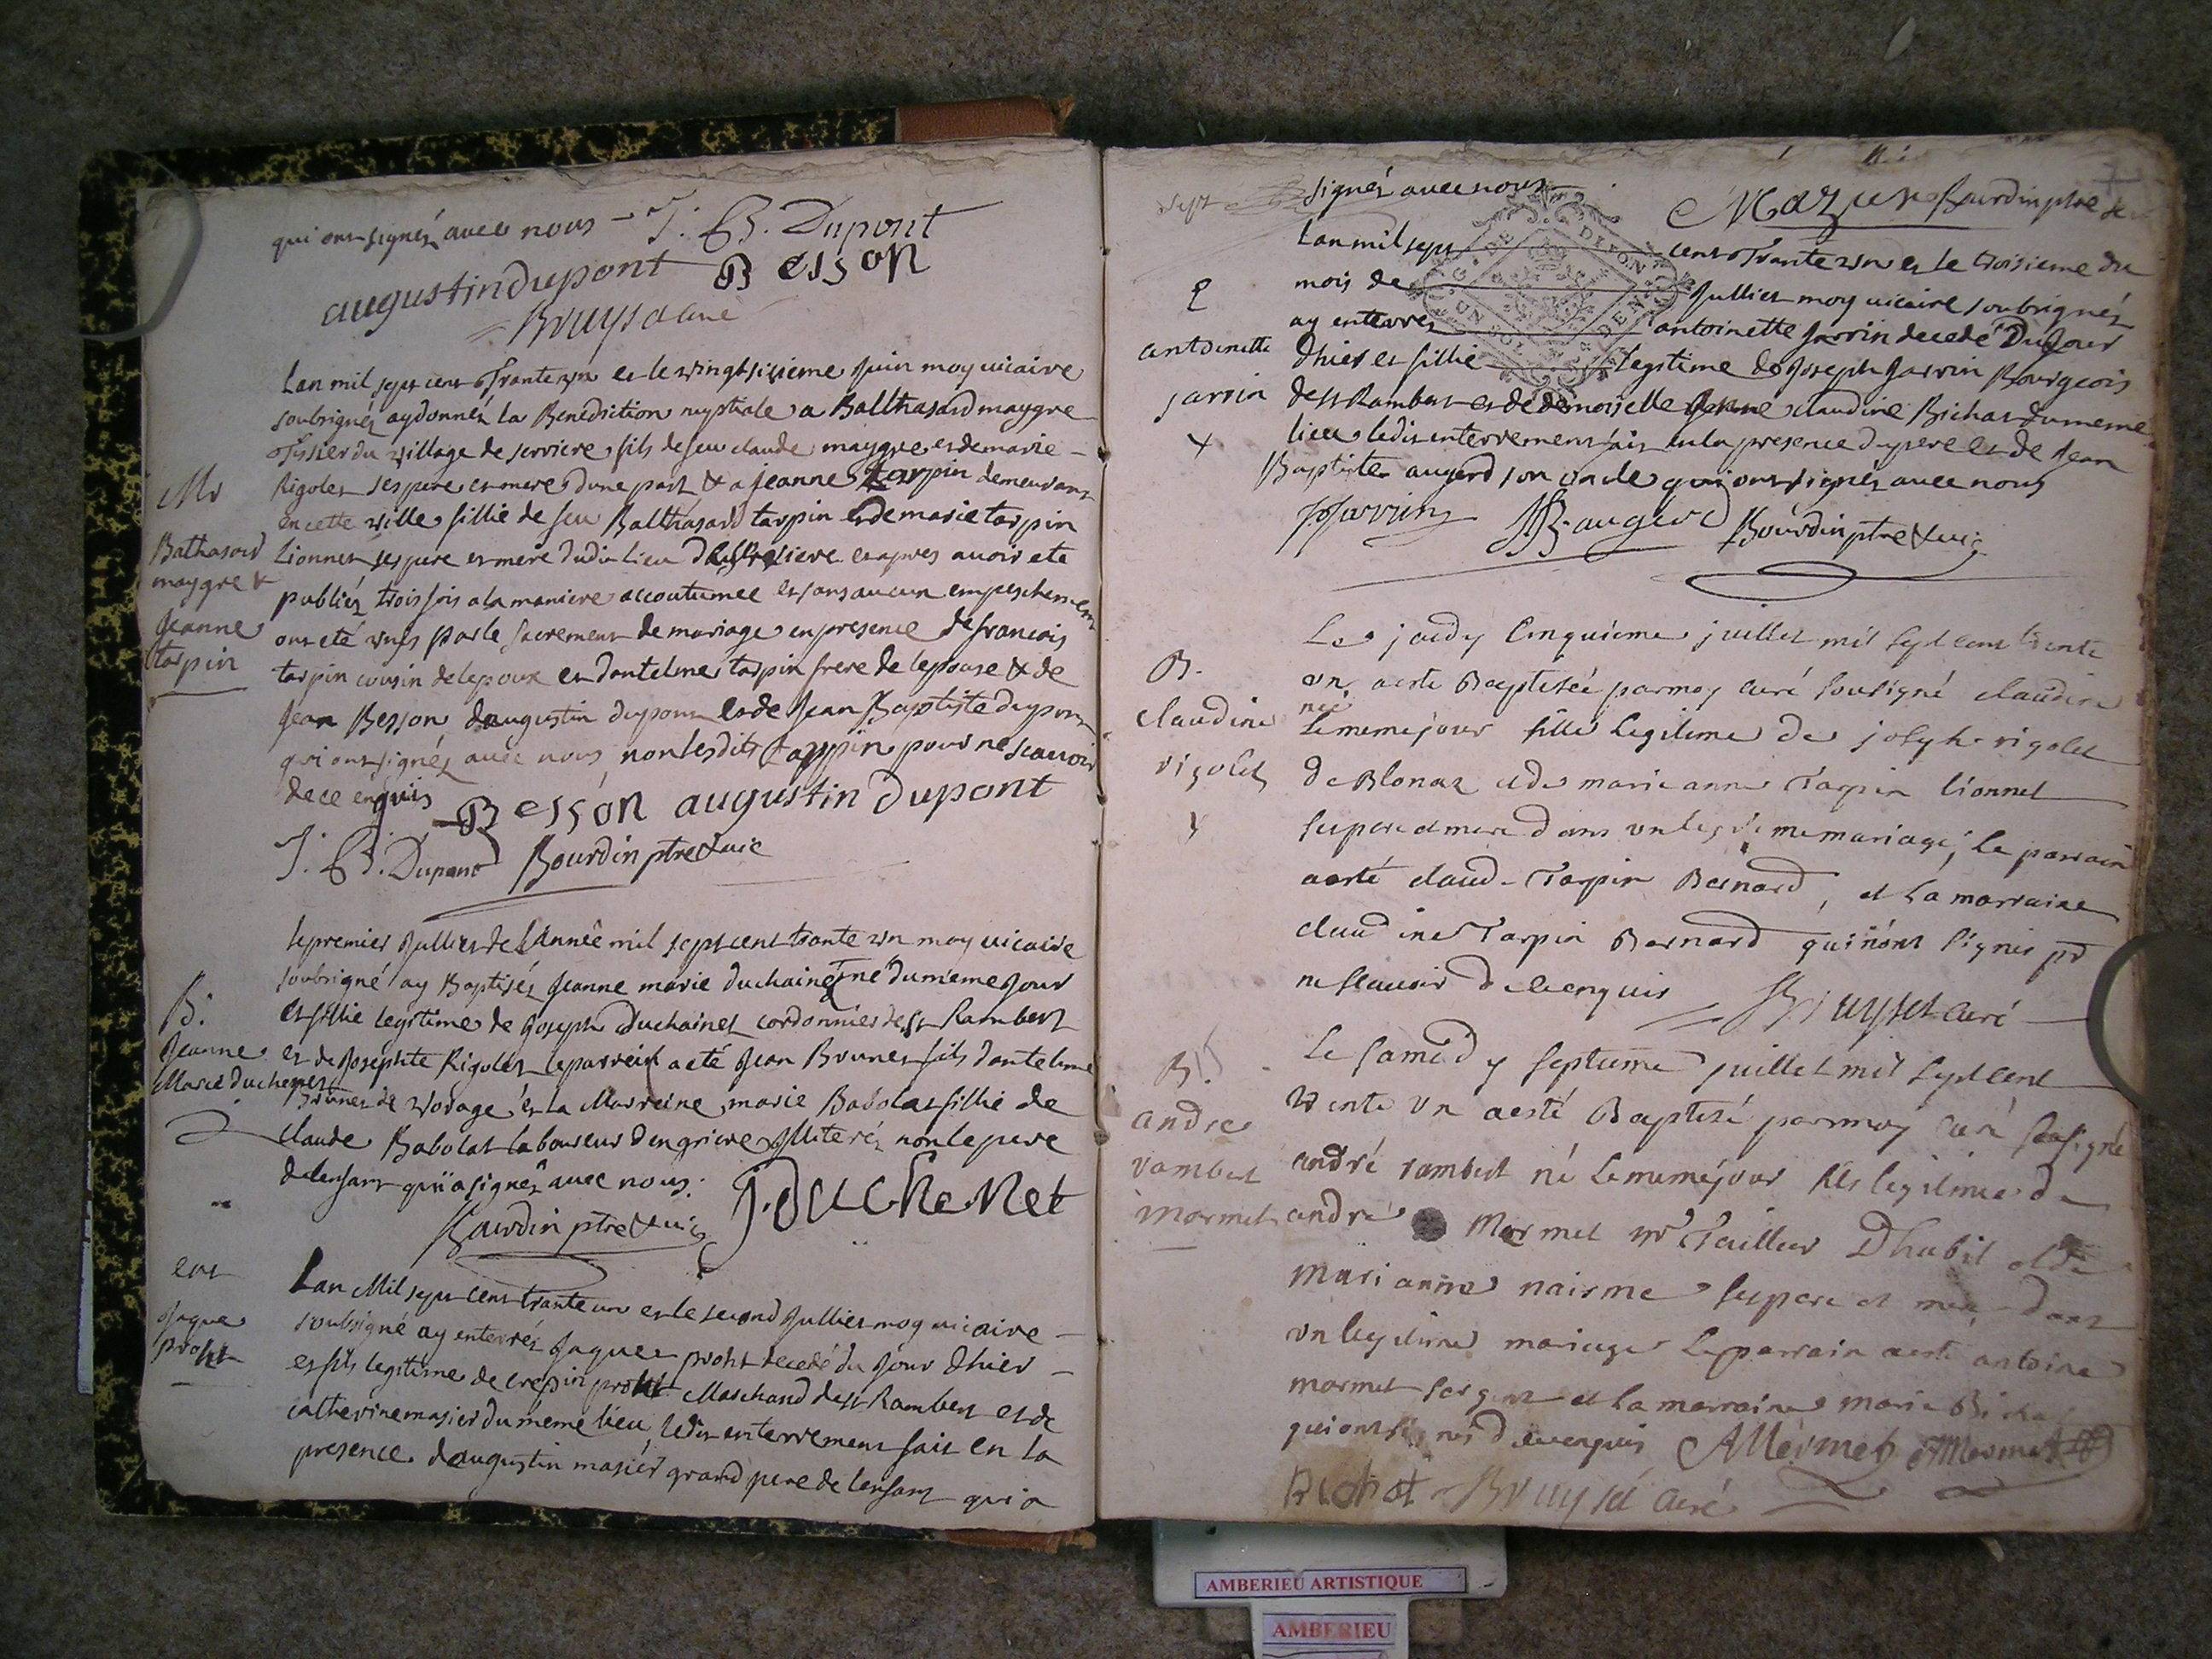 qui ont signéz avec nous – J. B. Dupont
augustin dupont Besson
Bruyset curé
Lan mil sept cent Trante un et le vingt sixieme Juin moy vicaire
soubsignéz ay donnéz la Benediction nuptiale a Balthasard maygre
Tissier du village de serriere fils de feu claude maygre et de marie
Rigolet ses pere et mere dune part & a jeanne tarpin demeurant
Mr
en cette ville fillie de feu Balthasard tarpin et de marie tarpin
Bathasard
Lionnet ses pere et mere dudit lieu et apres avoir ete
maygre &
publiéz trois fois a la maniere accoutumee et sans aucun empeschement
Jeanne
ont eté unis par le sacrement de mariage en presence de francois
tarpin
tarpin cousin de lepoux et dantelme tarpin frere de lepouse & de
Jean Besson daugustin dupont et de Jean Baptiste dupont
qui ont signéz avec nous, non lesdits tarppin pour ne scavoir
de ce enquis Besson augustin dupont
J. B. Dupont Bourdin ptre & vic
Le premier Julliet de lAnnée mil sept cent trante un moy vicaire
soubsigné ay Baptiséz Jeanne marie duchainet né du meme Jour
B.
et fillie legitime de Joseph Duchainet cordonnier de st Rambert
Jeanne
et de Josephte Rigolet le parrein a eté Jean Brunet fils dantelme
Marie duchenet
Brunet de vorage et la Marreine marie Babolat fillie de
claude Babolat laboureur dengriere Illiteréz non le pere
de lenfant qui a signéz avec nous.
J. duchenet
Bourdin ptre & vic
ent
Lan Mil sept cent trante un et le second Jullier moy vicaire
Jaque
soubsigné ay enterréz Jaque prost decedé du Jour dhier
prost
et fils legitime de crepin prost Marchand de st Rambert et de
catherine masier du meme lieu, ledit enterrement fait en la
presence daugustin masier grand pere de lenfant qui a
sept signéz avec nous
Mazuer Bourdin ptre
Lan mil sept cent Trante un et le troisieme du
mois de Jullier moy vicaire soubsignéz
ay enterréz antoinette Jarrin decedé Du Jour
antoinette
dhier et fillie legitime de Joseph Jarrin Bourgeois
jarrin
de st Rambert et de demoiselle claudine Bichat du meme
lieu ledit enterrement fait en la presence du pere et de Jean
Baptiste augerd son oncle qui ont signéz avec nous
J Jarrin JB. augerd Bourdin ptre & vic
Le jeudy Cinquieme juillet mil sept cent trente
B.
un a esté Baptiséé par moy curé sousigné claudine
claudine
née le meme jour fille legitime de joseph rigolet
rigolet
de Blonaz et de marie anne Tarpin lionnet
ses pere et mere dans un legitime mariage; le parrain
a esté claude Tarpin Bernard, et la marraine
claudine Tarpin Bernard qui nont signés pr
ne scavoir de ce enquis Bruyset curé
Le samedy septieme juillet mil sept cent
B.
trente un a esté Baptisé par moy curé sousigné
andre
rambert
andré rambert né le meme jour fils legitime de
mormet
andré Mormet mr Tailleur Dhabit et de
mari anne naisme ses pere et mere dans
un legitime mariage le parrain a esté antoine
mormet et la marraine marie Bichat
qui ont signés de ce enquis AMermet Mermet
Bichat Bruyset curé
AMBERIEU ARTISTIQUE
AMBERIEU